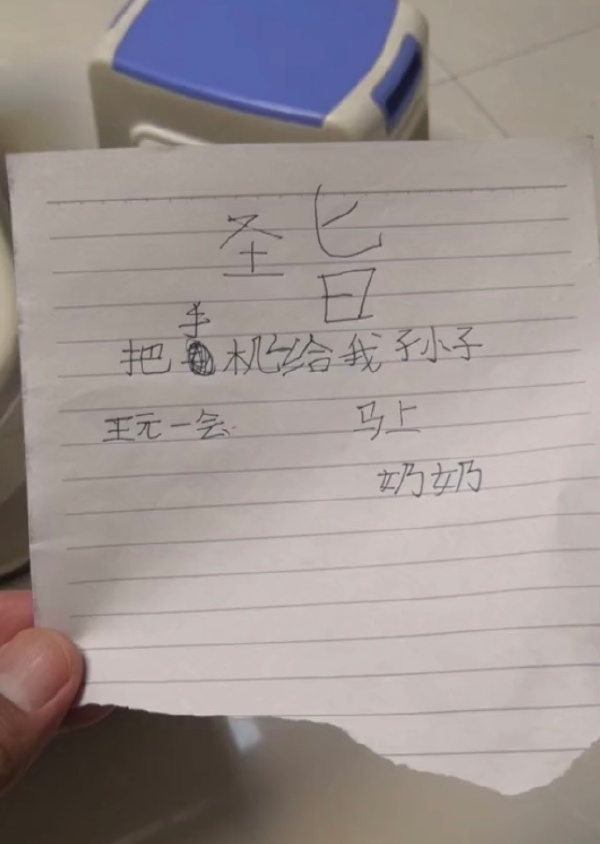 圣旨
把手机给我孙小子
王元一会
马上
奶奶